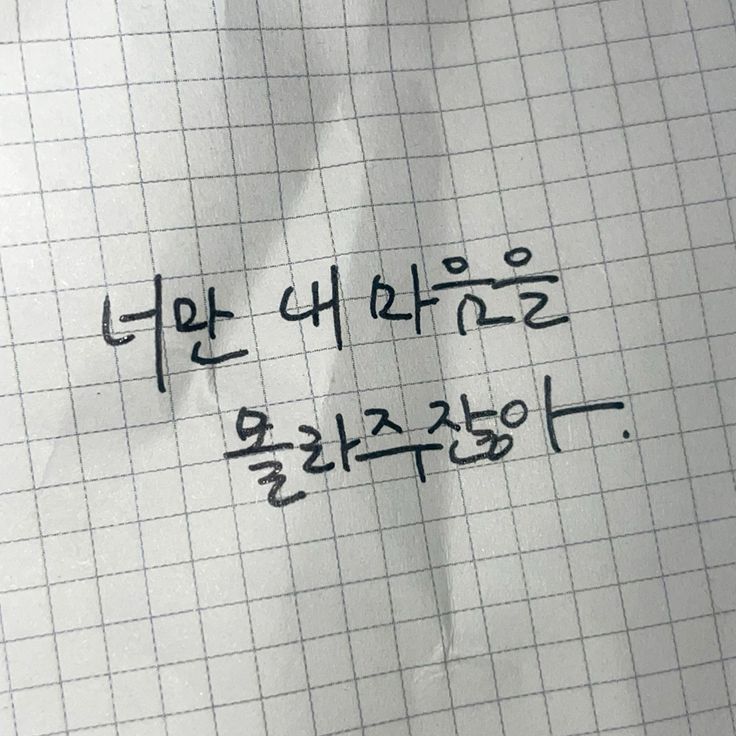 너만 내 마음을
몰라주잖아.